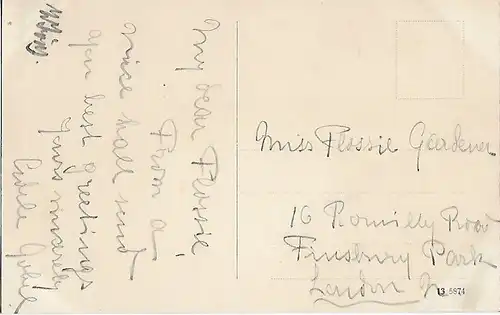 My dear Flossie
From a
nice hall send
you best greetings
Yours sincerely
Miss Flossie Gardener
16 Romilly Road
Finsbury Park
London N.
13 5874